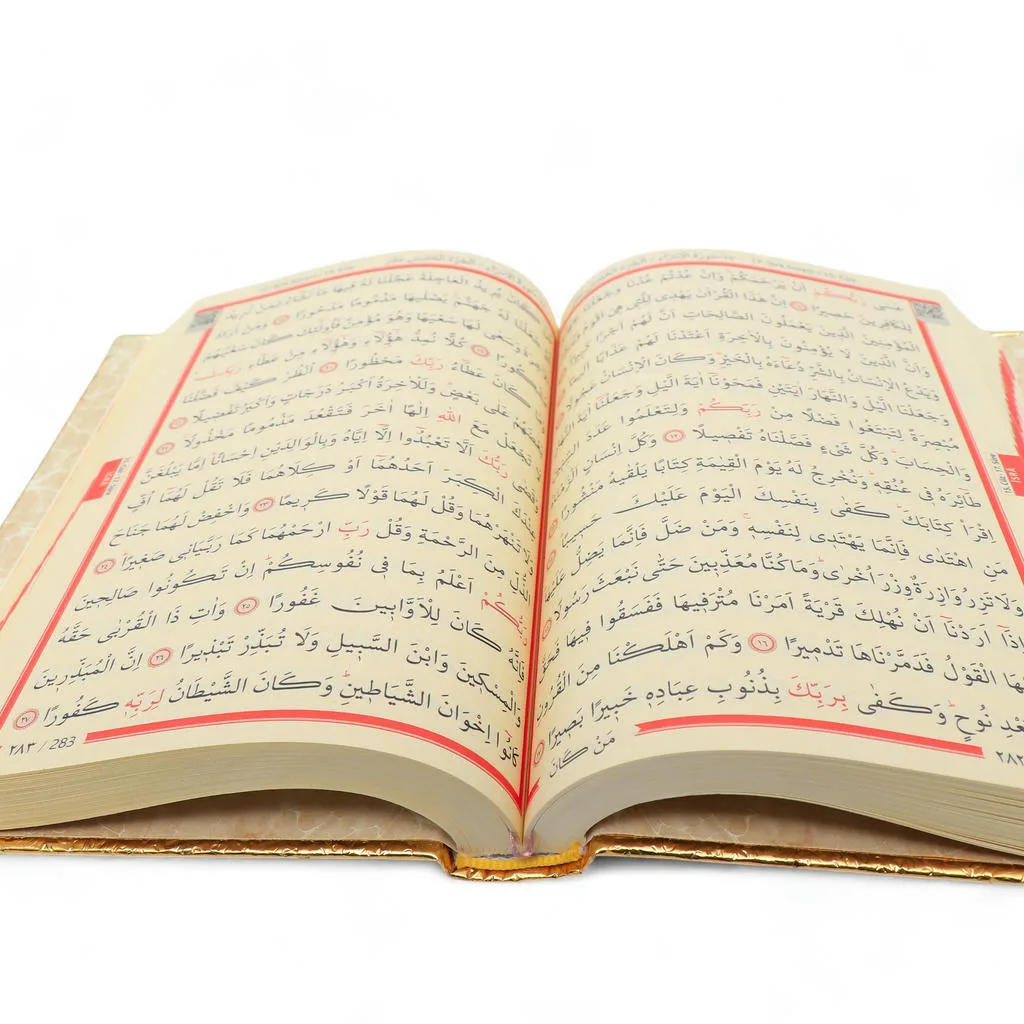 رَبُّكُمْ اَنْ يَرْحَمَكُمْ وَاِنْ عُدْتُمْ عُدْنَا وَجَعَلْنَا
لِلْكَافِرِينَ حَصِيرًا اِنَّ هٰذَا الْقُرْاٰنَ يَهْدِى لِلَّتِى هِىَ اَقْوَمُ
الْمُؤْمِنِينَ الَّذِينَ يَعْمَلُونَ الصَّالِحَاتِ اَنَّ لَهُمْ اَجْرًا
وَاَنَّ الَّذِينَ لَا يُؤْمِنُونَ بِالْاٰخِرَةِ اَعْتَدْنَا لَهُمْ عَذَابًا
وَيَدْعُ الْاِنْسَانُ بِالشَّرِّ دُعَاءَهُ بِالْخَيْرِ وَكَانَ الْاِنْسَانُ عَجُولًا
وَجَعَلْنَا الَّيْلَ وَالنَّهَارَ اٰيَتَيْنِ فَمَحَوْنَا اٰيَةَ الَّيْلِ وَجَعَلْنَا اٰيَةَ
مُبْصِرَةً لِتَبْتَغُوا فَضْلًا مِنْ رَبِّكُمْ وَلِتَعْلَمُوا عَدَدَ
وَالْحِسَابَ وَكُلَّ شَىْءٍ فَصَّلْنَاهُ تَفْصِيلًا ١٢ وَكُلَّ اِنْسَانٍ
طَائِرَهُ فِى عُنُقِهِ وَنُخْرِجُ لَهُ يَوْمَ الْقِيٰمَةِ كِتَابًا يَلْقٰيهُ مَنْشُورًا
اِقْرَاْ كِتَابَكَ كَفٰى بِنَفْسِكَ الْيَوْمَ عَلَيْكَ حَسِيبًا
مَنِ اهْتَدٰى فَاِنَّمَا يَهْتَدِى لِنَفْسِهِ وَمَنْ ضَلَّ فَاِنَّمَا يَضِلُّ عَلَيْهَا
وَلَا تَزِرُ وَازِرَةٌ وِزْرَ اُخْرٰى وَمَا كُنَّا مُعَذِّبِينَ حَتّٰى نَبْعَثَ رَسُولًا
وَاِذَا اَرَدْنَا اَنْ نُهْلِكَ قَرْيَةً اَمَرْنَا مُتْرَفِيهَا فَفَسَقُوا فِيهَا فَحَقَّ
عَلَيْهَا الْقَوْلُ فَدَمَّرْنَاهَا تَدْمِيرًا ١٦ وَكَمْ اَهْلَكْنَا مِنَ الْقُرُونِ
بَعْدِ نُوحٍ وَكَفٰى بِرَبِّكَ بِذُنُوبِ عِبَادِهِ خَبِيرًا بَصِيرًا ١٧
مَنْ كَانَ
٢٨٢
ISRÂ
كَانَ يُرِيدُ الْعَاجِلَةَ عَجَّلْنَا لَهُ فِيهَا مَا نَشَاءُ لِمَنْ نُرِيدُ
جَعَلْنَا لَهُ جَهَنَّمَ يَصْلٰيهَا مَذْمُومًا مَدْحُورًا وَمَنْ اَرَادَ
وَسَعٰى لَهَا سَعْيَهَا وَهُوَ مُؤْمِنٌ فَاُولٰئِكَ كَانَ سَعْيُهُمْ
كُلًّا نُمِدُّ هٰؤُلَاءِ وَهٰؤُلَاءِ مِنْ عَطَاءِ رَبِّكَ
كَانَ عَطَاءُ رَبِّكَ مَحْظُورًا ٢٠ اُنْظُرْ كَيْفَ فَضَّلْنَا
بَعْضَهُمْ عَلٰى بَعْضٍ وَلَلْاٰخِرَةُ اَكْبَرُ دَرَجَاتٍ وَاَكْبَرُ تَفْضِيلًا ٢١
تَجْعَلْ مَعَ اللّٰهِ اِلٰهًا اٰخَرَ فَتَقْعُدَ مَذْمُومًا مَخْذُولًا ٢٢
وَقَضٰى رَبُّكَ اَلَّا تَعْبُدُوا اِلَّا اِيَّاهُ وَبِالْوَالِدَيْنِ اِحْسَانًا اِمَّا يَبْلُغَنَّ
الْكِبَرَ اَحَدُهُمَا اَوْ كِلَاهُمَا فَلَا تَقُلْ لَهُمَا اُفٍّ
تَنْهَرْهُمَا وَقُلْ لَهُمَا قَوْلًا كَرِيمًا ٢٣ وَاخْفِضْ لَهُمَا جَنَاحَ
الذُّلِّ مِنَ الرَّحْمَةِ وَقُلْ رَبِّ ارْحَمْهُمَا كَمَا رَبَّيَانِى صَغِيرًا ٢٤
رَبُّكُمْ اَعْلَمُ بِمَا فِى نُفُوسِكُمْ اِنْ تَكُونُوا صَالِحِينَ
فَاِنَّهُ كَانَ لِلْاَوَّابِينَ غَفُورًا ٢٥ وَاٰتِ ذَا الْقُرْبٰى حَقَّهُ
وَالْمِسْكِينَ وَابْنَ السَّبِيلِ وَلَا تُبَذِّرْ تَبْذِيرًا ٢٦ اِنَّ الْمُبَذِّرِينَ
كَانُوا اِخْوَانَ الشَّيَاطِينِ وَكَانَ الشَّيْطَانُ لِرَبِّهِ كَفُورًا ٢٧
٢٨٣ / 283